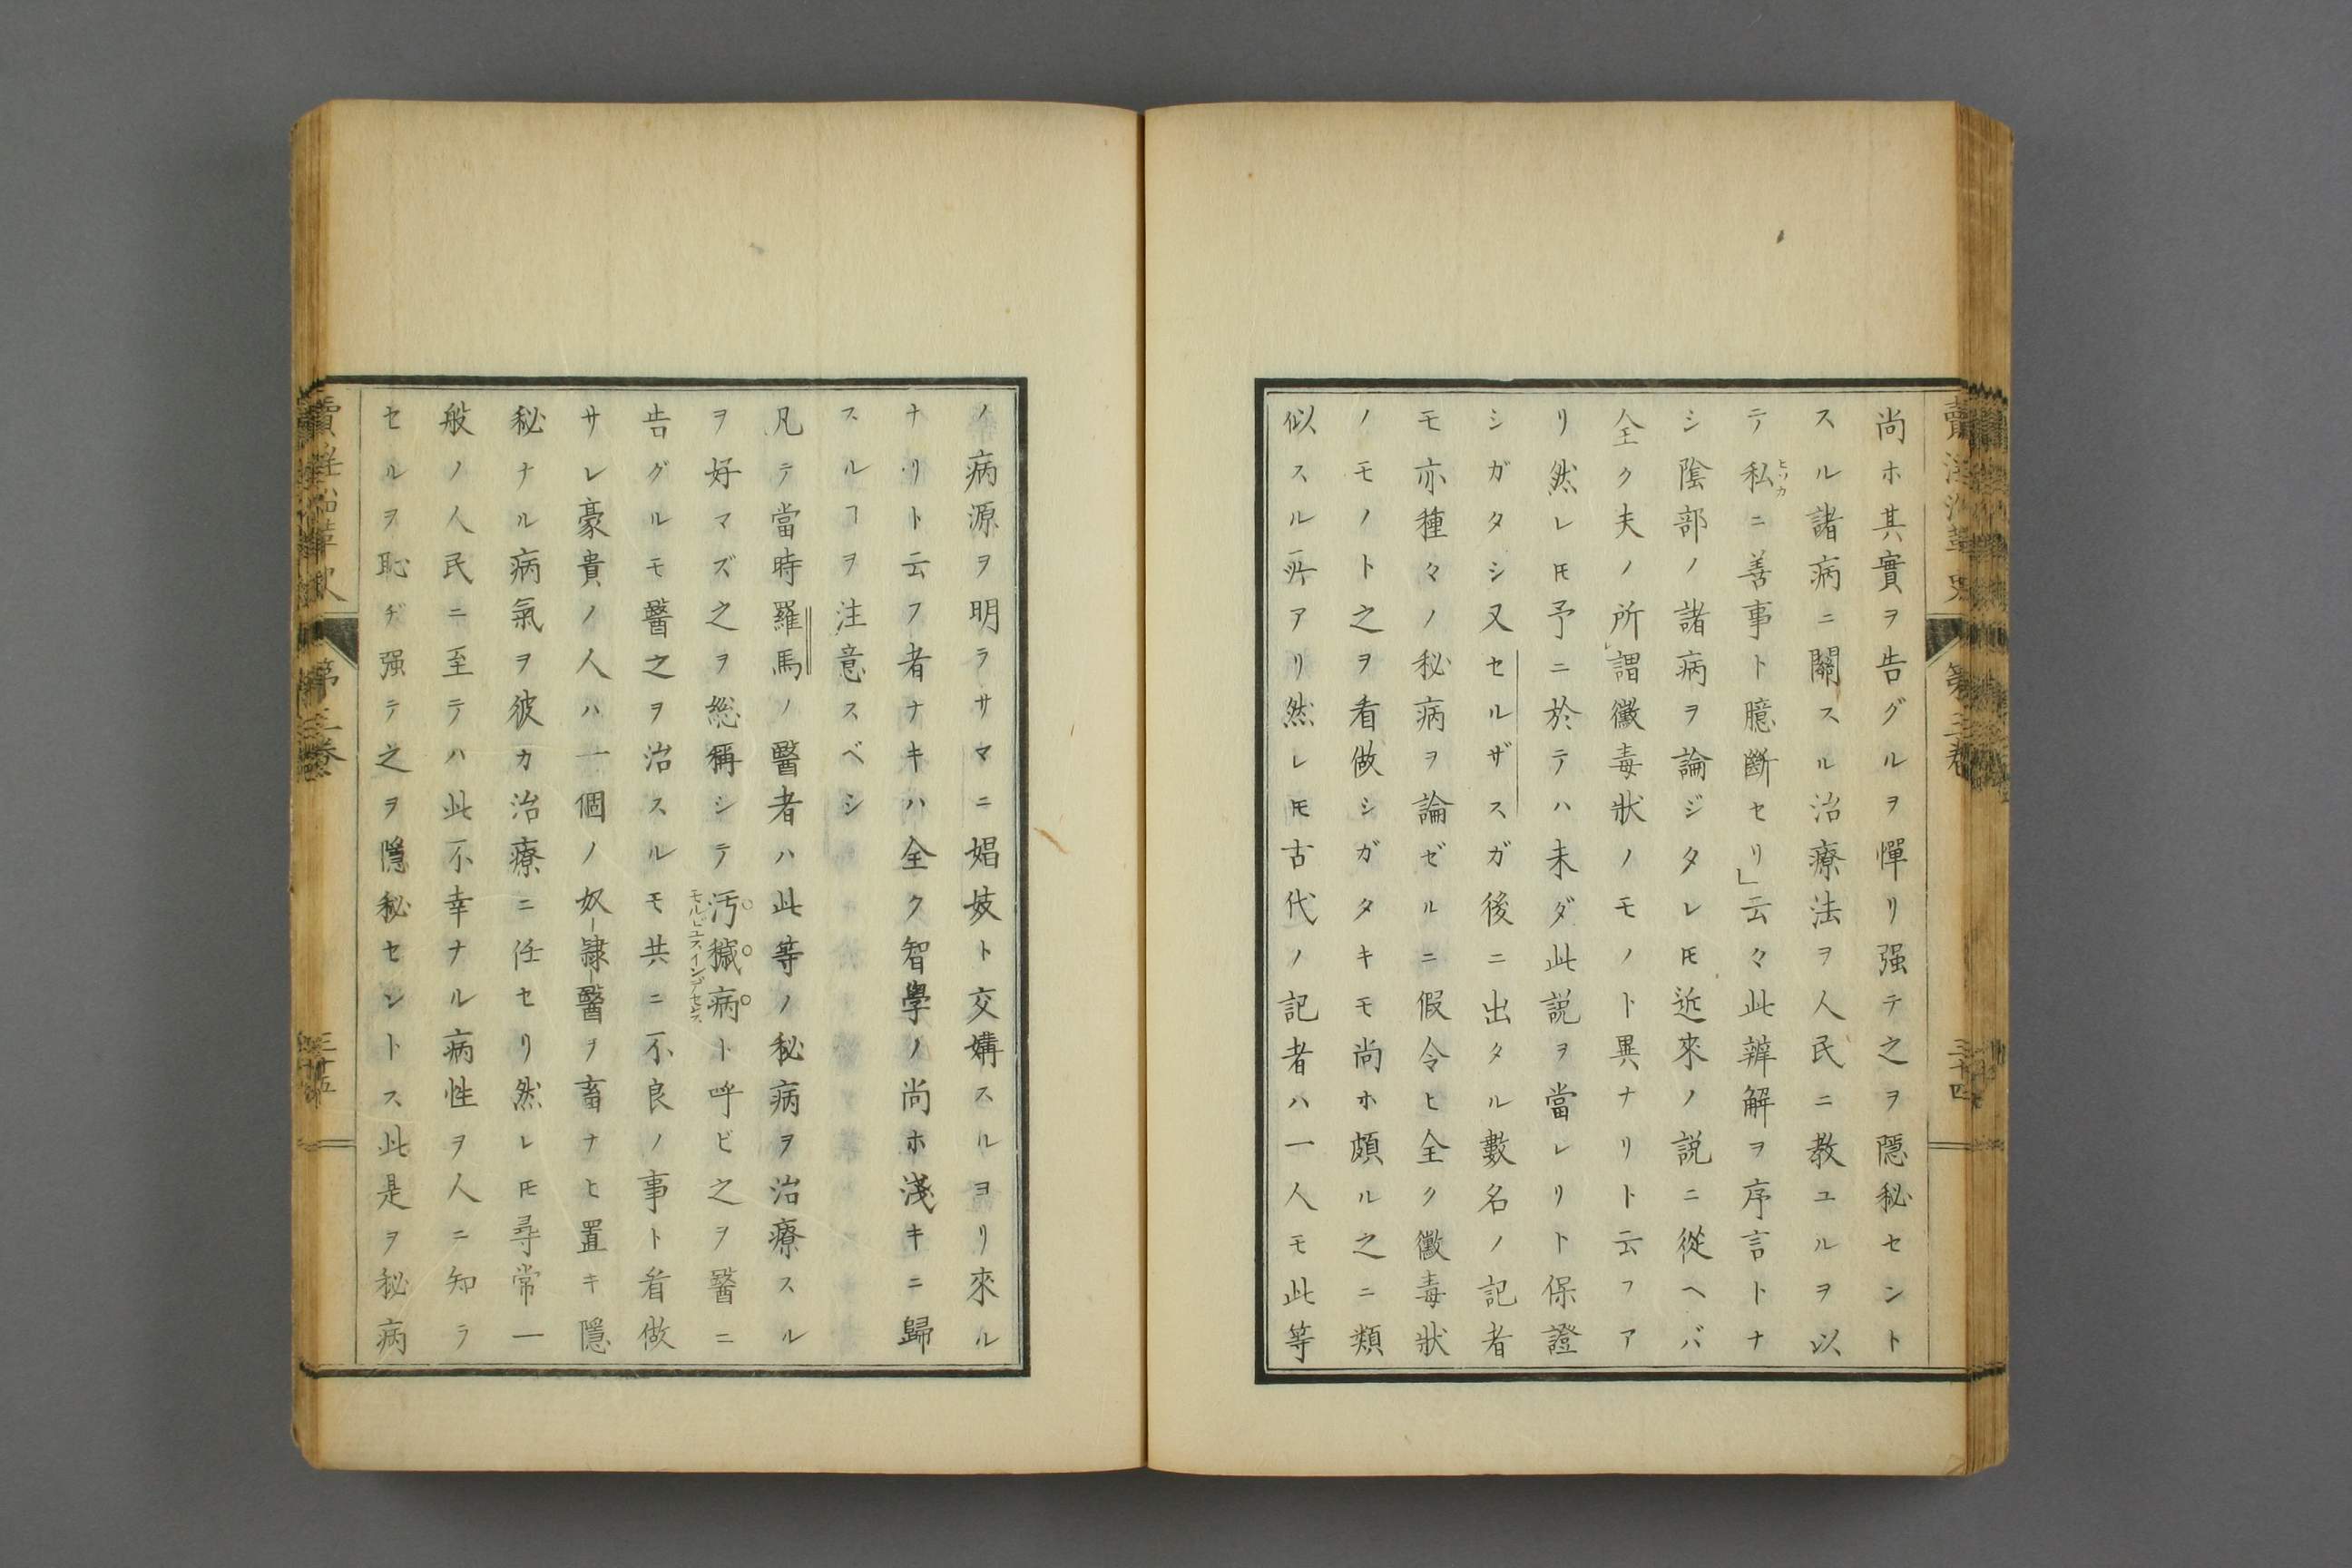 賣淫沿革史 第三卷 三十四
尚ホ其實ヲ告グルヲ憚リ强テ之ヲ隱秘セント
スル諸病ニ關スル治療法ヲ人民ニ教ユルヲ以
テ私ヒソカニ善事ト臆斷セリ」云々此辨解ヲ序言トナ
シ陰部ノ諸病ヲ論ジタレ𪜈近來ノ説ニ從ヘバ
全ク夫ノ所謂黴毒狀ノモノト異ナリト云フア
リ然レ𪜈予ニ於テハ未ダ此説ヲ當レリト保證
シガタシ又セルザスガ後ニ出タル數名ノ記者
モ亦種々ノ秘病ヲ論ゼルニ假令ヒ全ク黴毒狀
ノモノト之ヲ看做シガタキモ尚ホ頗ル之ニ類
似スル所アリ然レ𪜈古代ノ記者ハ一人モ此等
ノ病源ヲ明ラサマニ娼妓ト交媾スルヨリ來ル
ナリト云フ者ナキハ全ク智學ノ尚ホ淺キニ歸
スルヿヲ注意スベシ
凡テ當時羅馬ノ醫者ハ此等ノ秘病ヲ治療スル
ヲ好マズ之ヲ総稱シテ汚穢病モルビユスインデセンストト呼ビ之ヲ醫ニ
告グルモ醫之ヲ治スルモ共ニ不良ノ事ト看做
サレ豪貴ノ人ハ一個ノ奴隷醫ヲ畜ナヒ置キ隱
秘ナル病氣ヲ彼カ治療ニ任セリ然レ𪜈尋常一
般ノ人民ニ至テハ此不幸ナル病性ヲ人ニ知ラ
セルヲ恥ヂ强テ之ヲ隱秘セントス此是ヲ秘病
賣淫沿革史 第三卷 三十五